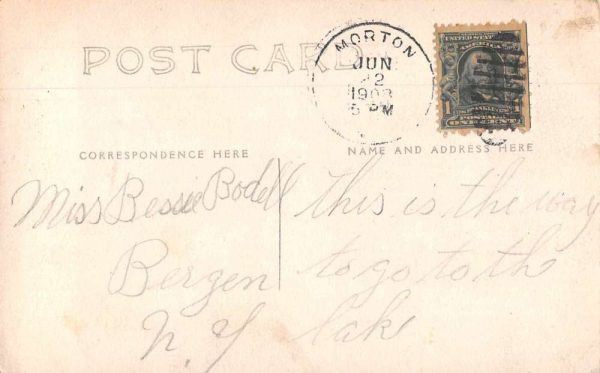 POST CARD
MORTON
JUN
2
1908
5 PM
UNITED STATES
AMERICA
FRANKLIN
1 1
POSTAGE
ONE CENT
CORRESPONDENCE HERE
NAME AND ADDRESS HERE
Miss Bessie Bodell
Bergen
N. Y
This is the way
to go to the
lake